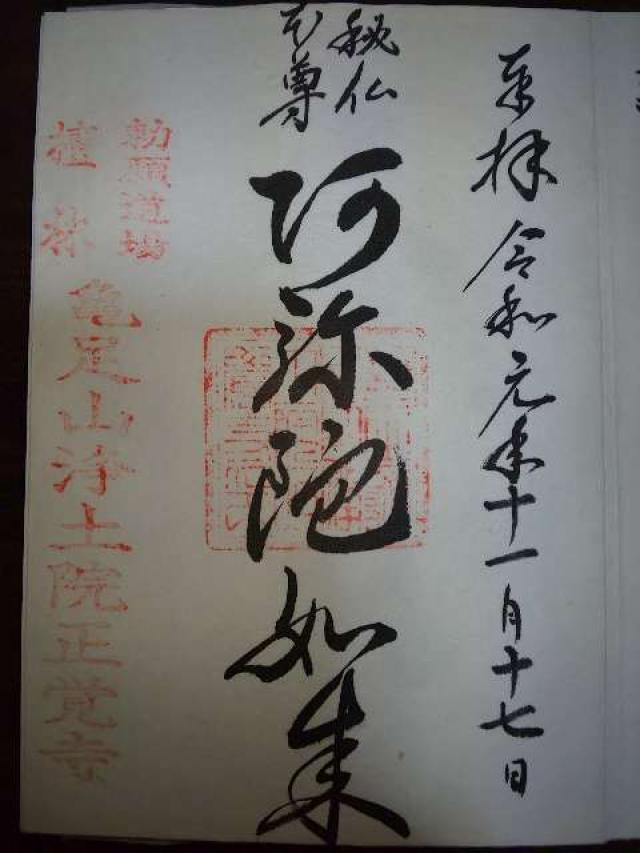 奉拝 令和元年十一月十七日
秘仏
至尊
阿弥陀如来
勅願道場
檀林
亀足山浄土院正覚寺